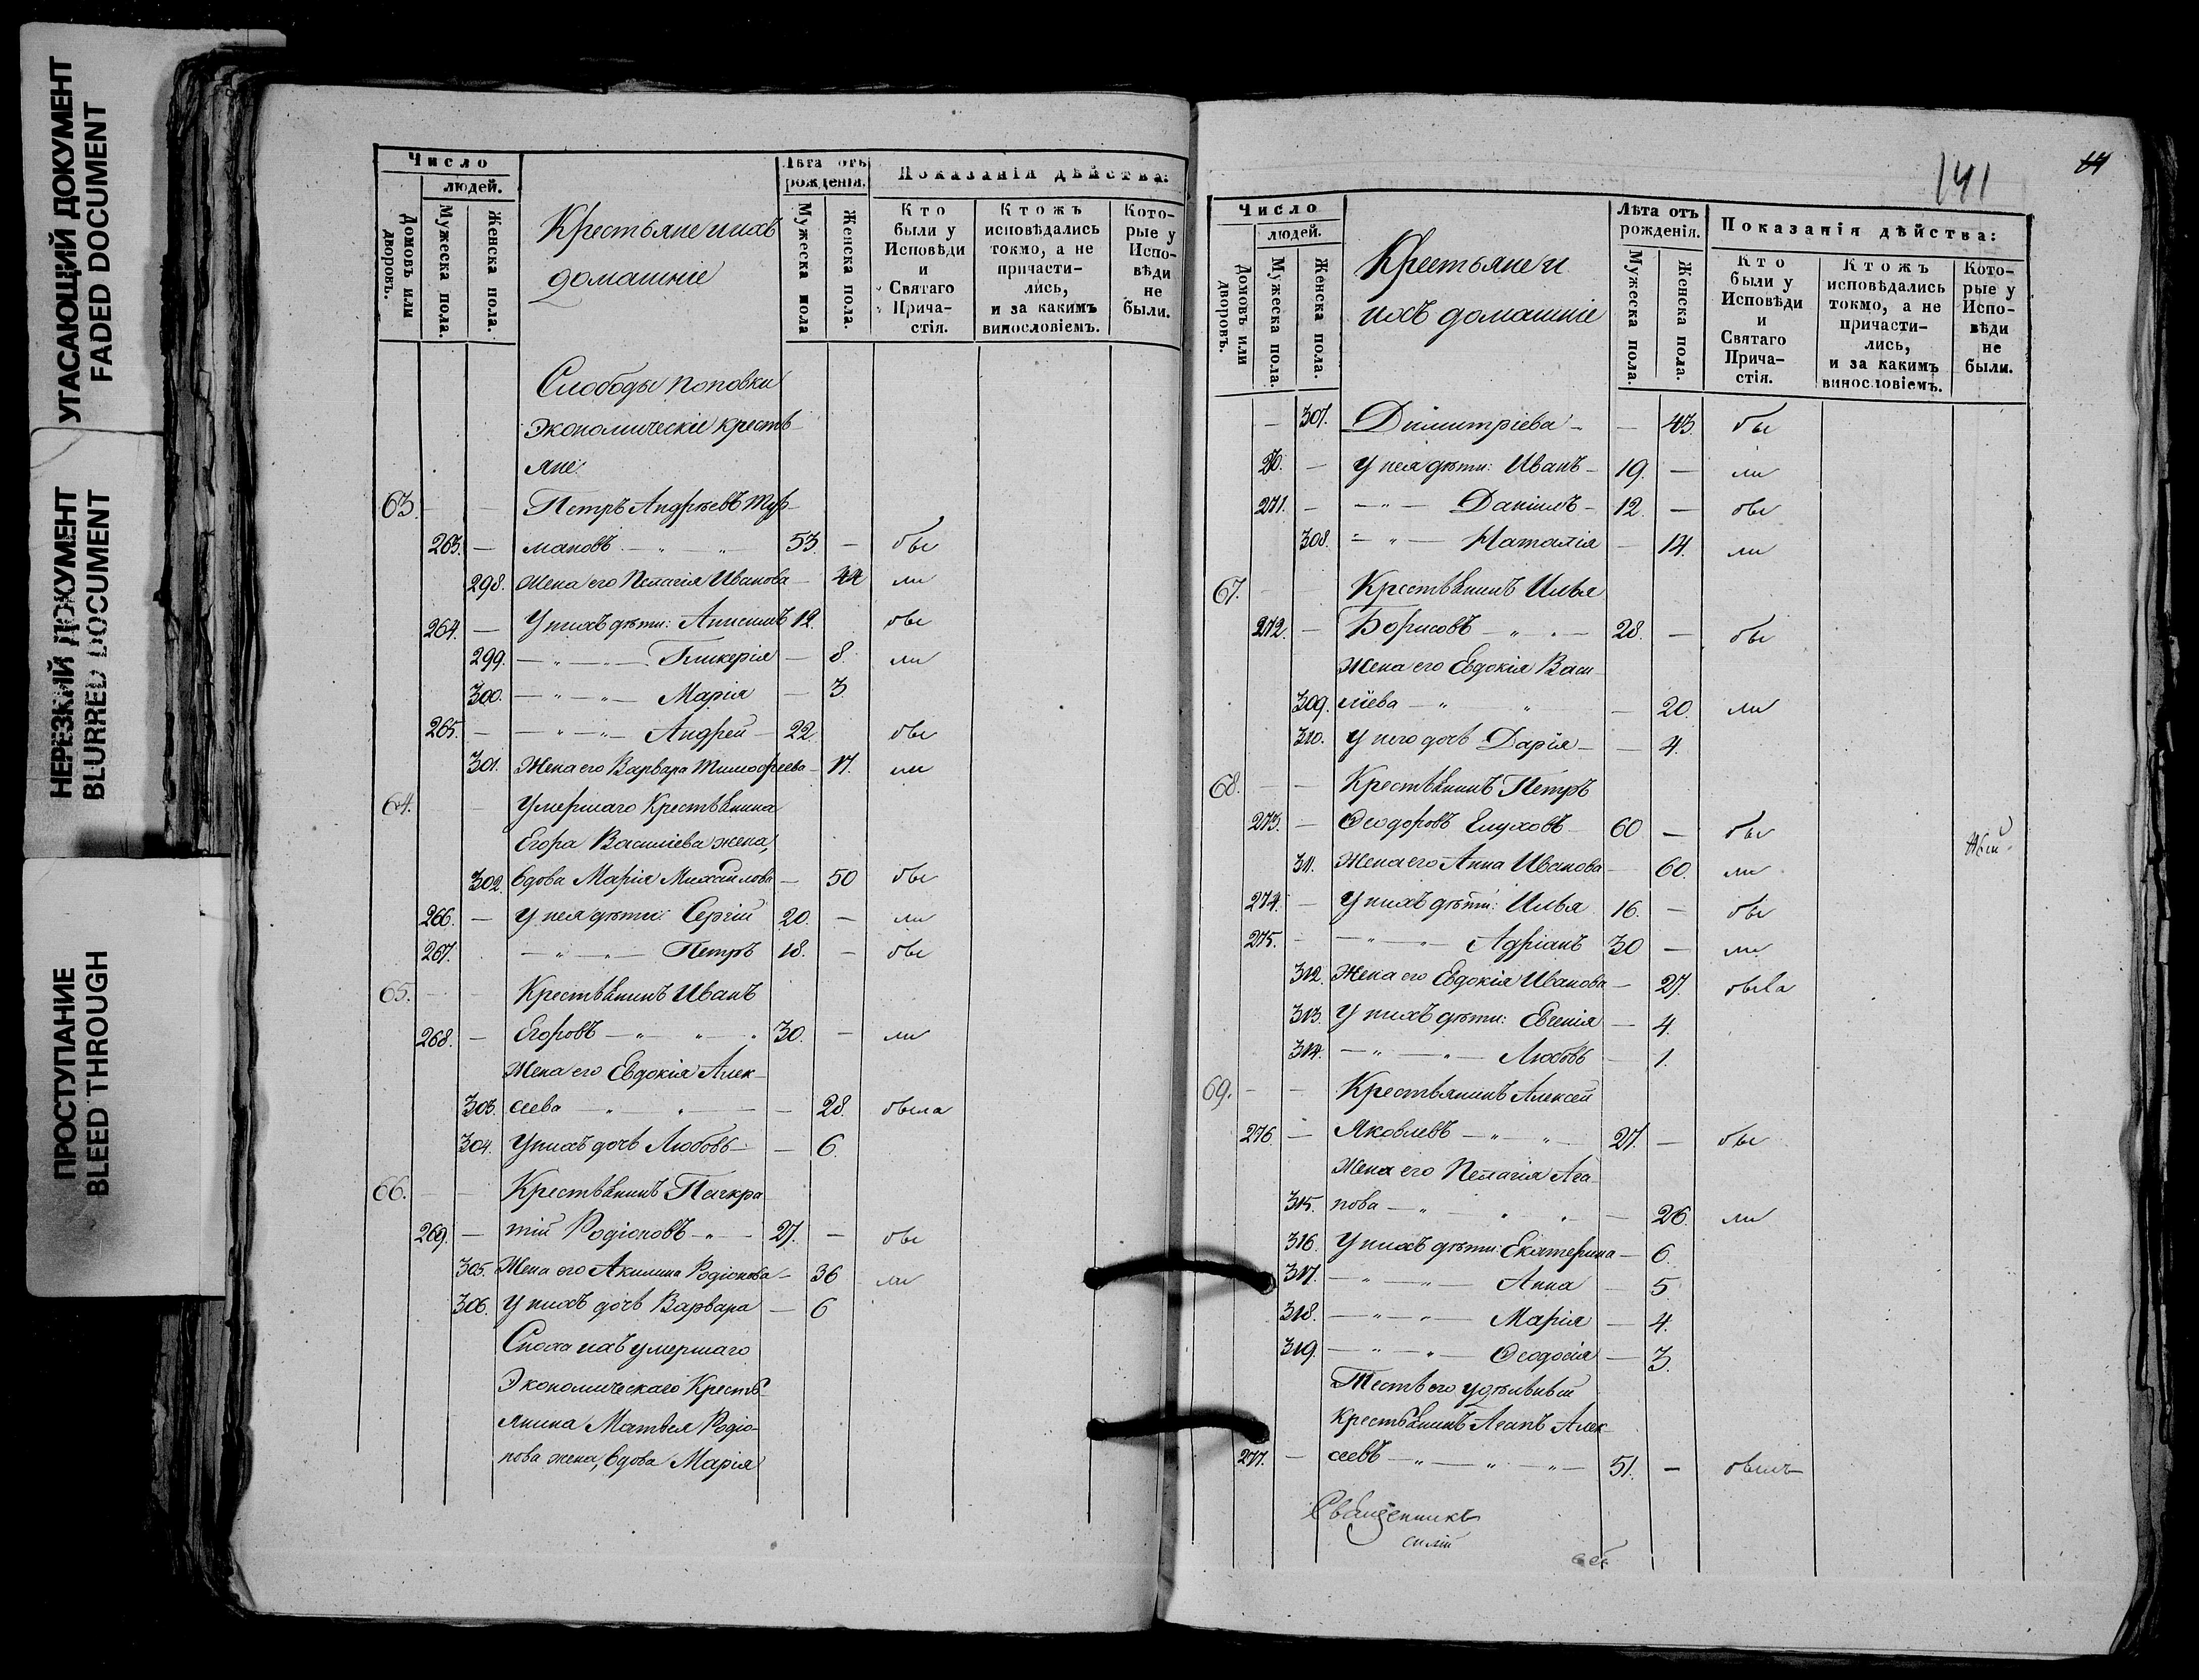 УГАСАЮЩИЙ ДОКУМЕНТ
FADED DOCUMENT
НЕРЕЗКИЙ ДОКУМЕНТ
BLURRED DOCUMENT
ПРОСТУПАНИЕ
BLEED THROUGH
Число
людей.
Домовъ или дворовъ.
Мужеска пола.
Женска пола.
Крестьяне и ихъ
домашніе
Лѣта отъ
рожденія.
Мужеска пола
Женска пола.
Показанія дѣйства:
Кто были у Исповѣди и Святаго Прича-стія.
Ктожъ исповѣдались токмо, а не причасти-лись, и за какимъ винословіемъ.
Кото-рые у Испо-вѣди не были.
Слободы Поповки
Экономическіе кресть-
яне
63. — — Петръ Андреевъ
263. — 53. — бы
298. Жена его Пелагія Иванова — 44 ли
264. — У нихъ дѣти: Анисимъ 12. бы
299. — " — " — Гликерія — 8. ли
300. — " — " — Марія — 3.
265. — — " — " — Андрей — 22. бы
301. Жена его Варвара Тимофеева — 17. ли
64. — Умершаго Крестьянина
Егора Василіева жена,
302. вдова Марія Михайлова — 50 бы
266. — у нея дѣти: Сергій 20. — ли
267. — " — " — Петръ 18. — бы
65. — — Крестьянинъ Иванъ
268. — Егоровъ — " — " — " 30. — ли
Жена его Евдокія Алек-
303. сеева — " — " — — 28. была
304. У нихъ дочь Любовь — — 6.
66. — — Крестьянинъ Панкра-
269. — тій Родіоновъ — " — 27. — бы
305. Жена его Акилина Родіонова — 36 ли
306. У нихъ дочь Варвара — 6
Сноха ихъ умершаго
Экономическаго Кресть-
янина Матвея Родіо-
нова жена, вдова Марія
141
Число
людей.
Домовъ или дворовъ.
Мужеска пола.
Женска пола.
Крестьяне и
ихъ домашніе
Лѣта отъ
рожденія.
Мужеска пола.
Женска пола.
Показанія дѣйства:
Кто были у Исповѣди и Святаго Прича-стія.
Ктожъ исповѣдались токмо, а не причасти-лись, и за какимъ винословіемъ.
Кото-рые у Испо-вѣди не были.
— 307. Димитріева — — 43. бы
— у нея дѣти: Иванъ — 19. — ли
271. — — " — Даніилъ — 12. — бы
308. — " — Наталія — 14. ли
67. — — Крестьянинъ Илья
272. — Борисовъ — " — 28. — бы
Жена его Евдокія Васи-
309. ліева — " " — 20. ли
310. У него дочь Дарія — — 4.
68. — — Крестьянинъ Петръ
273. — Ѳеодоровъ Глуховъ — 60. — бы
311. Жена его Анна Иванова — 60. ли
274. — У нихъ дѣти: Илья 16. — бы
275. — — " — " — Адріанъ 30 — ли
312. Жена его Евдокія Иванова — 27. была
313. У нихъ дѣти: Евгенія — 4.
314. — " — " — Любовь — 1.
69. — — Крестьянинъ Алексей
276 — Яковлевъ — " — " 27. — бы
Жена его Пелагія Ага-
315. пова — " — 26. ли
316. У нихъ дѣти: Екатерина — 6.
317. — " — " — Анна — 5
318. — " — " — Марія — 4.
319. — " — " — Ѳеодосія — 3.
Тесть его удѣльный
крестьянинъ Агапъ Алек-
277. — сеевъ — " — " — " — 51. — былъ
Священникъ